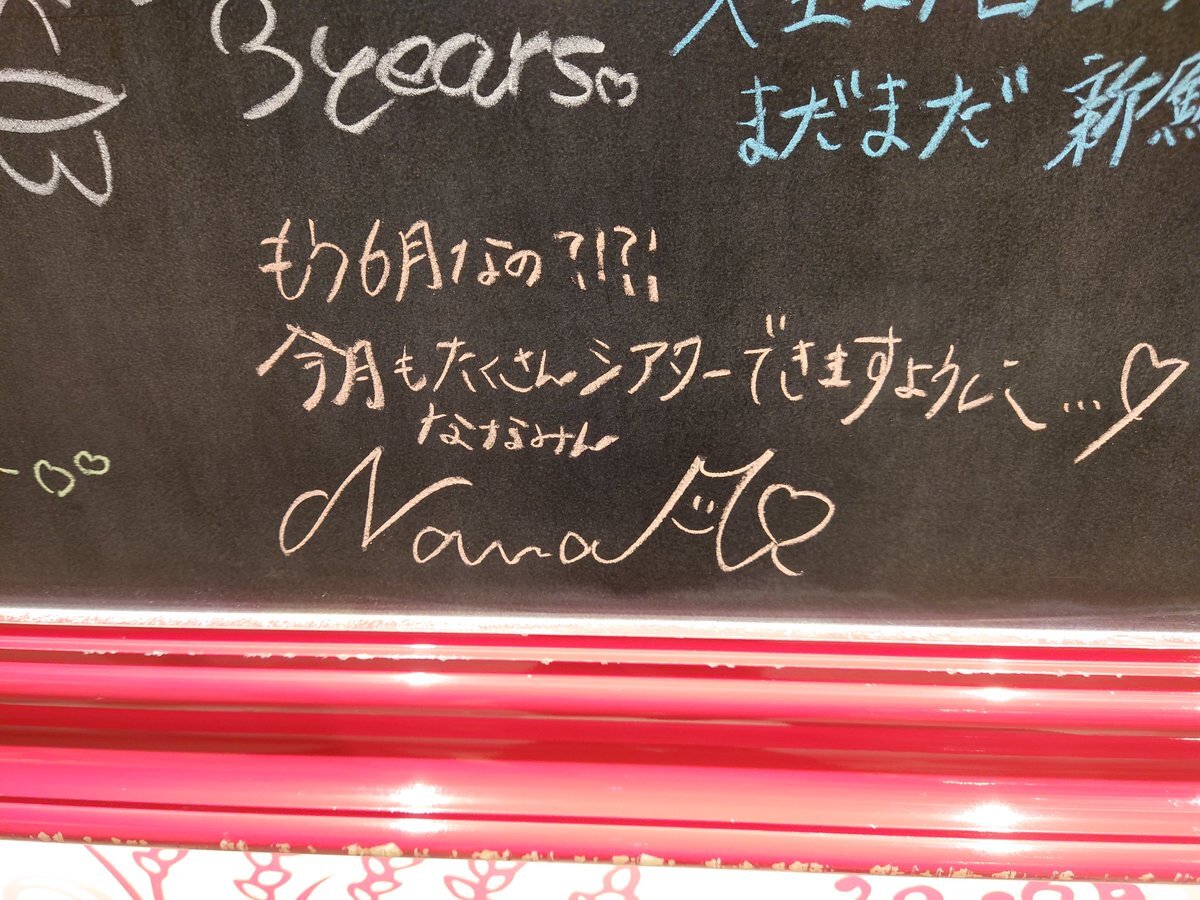 3years
まだまだ 新鮮
もう6月なの?!?!
今月もたくさんシアターできますように...
ななみん
Nana